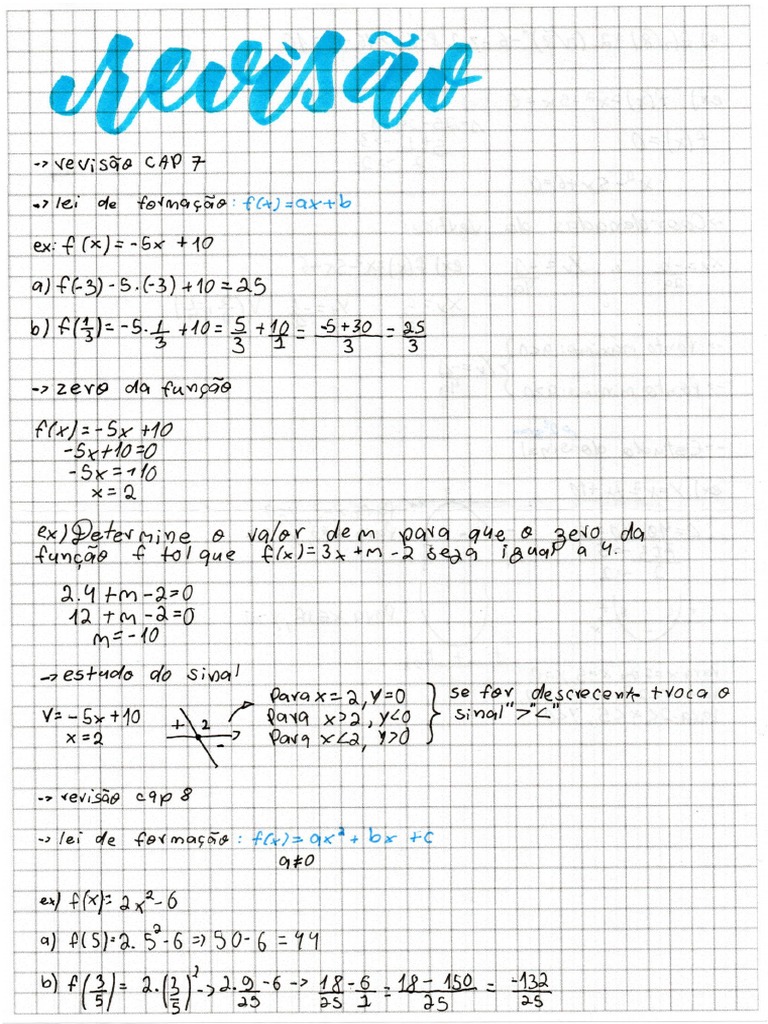 revisão
→ revisão CAP 7
→ lei de formação: f(x)=ax+b
ex: f(x)=-5x+10
a) f(-3)-5.(-3)+10=25
b) f(1/3)=-5.1/3+10=5/3+10/1=-5+30/3=25/3
→ zero da função
f(x)=-5x+10
-5x+10=0
-5x=+10
x=2
ex) Determine o valor de m para que o zero da
função f tal que f(x)=3x+m-2 seza igual a 4.
2.4+m-2=0
12+m-2=0
m=-10
→ estudo do sinal
Y=-5x+10
x=2
+ 2 -
Para x=2, y=0
Para x>2, y<0
Para x<2, y>0
se for descrecent troca o
sinal ">" "<"
→ revisão cap 8
→ lei de formação: f(x)=ax²+bx+c
a≠0
ex) f(x)=2x²-6
a) f(5)=2.5²-6⇒50-6=44
b) f(3/5)=2.(3/5)²→2.9/25-6→18/25-6/1=18-150/25=-132/25